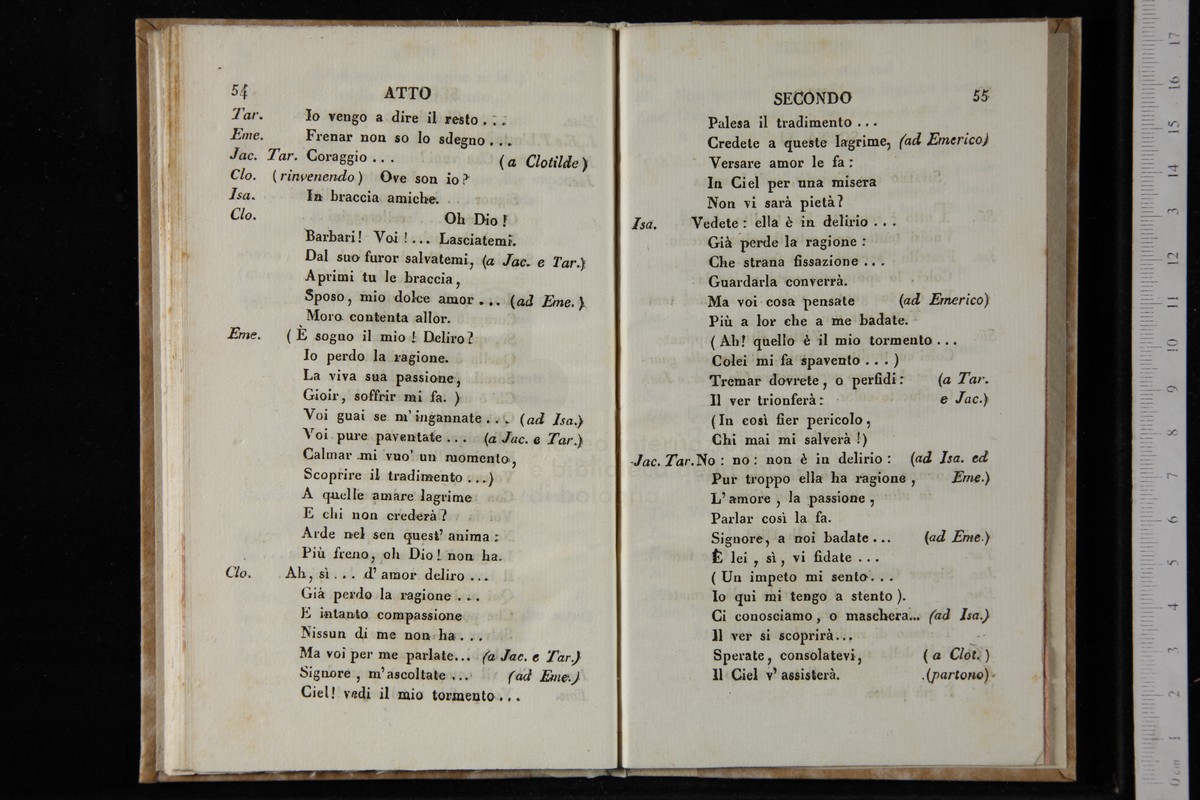 54 ATTO
Tar. Io vengo a dire il resto . . .
Eme. Frenar non so lo sdegno . . .
Jac. Tar. Coraggio . . . (a Clotilde)
Clo. (rinvenendo) Ove son io?
Isa. In braccia amiche.
Clo. Oh Dio!
Barbari! Voi!... Lasciatemi.
Dal suo furor salvatemi, (a Jac. e Tar.)
Aprimi tu le braccia,
Sposo, mio dolce amor ... (ad Eme.)
Moro contenta allor.
Eme. (È sogno il mio! Deliro?
Io perdo la ragione.
La viva sua passione,
Gioir, soffrir mi fa. )
Voi guai se m'ingannate . . . (ad Isa.)
Voi pure paventate . . . (a Jac. e Tar.)
Calmar mi vuo' un momento,
Scoprire il tradimento ...)
A quelle amare lagrime
E chi non crederà?
Arde nel sen quest' anima:
Più freno, oh Dio! non ha.
Clo. Ah, sì . . . d' amor deliro ...
Già perdo la ragione . . .
E intanto compassione
Nissun di me non ha . . .
Ma voi per me parlate... (a Jac. e Tar.)
Signore, m'ascoltate ... (ad Eme.)
Ciel! vedi il mio tormento . . .
SECONDO 55
Palesa il tradimento . . .
Credete a queste lagrime, (ad Emerico)
Versare amor le fa:
In Ciel per una misera
Non vi sarà pietà?
Isa. Vedete: ella è in delirio . . .
Già perde la ragione:
Che strana fissazione . . .
Guardarla converrà.
Ma voi cosa pensate (ad Emerico)
Più a lor che a me badate.
(Ah! quello è il mio tormento . . .
Colei mi fa spavento . . . )
Tremar dovrete, o perfidi: (a Tar.
Il ver trionferà: e Jac.)
(In così fier pericolo,
Chi mai mi salverà!)
Jac. Tar. No: no: non è in delirio: (ad Isa. ed
Pur troppo ella ha ragione, Eme.)
L' amore, la passione,
Parlar così la fa.
Signore, a noi badate ... (ad Eme.)
È lei, sì, vi fidate . . .
(Un impeto mi sento . . .
Io qui mi tengo a stento ).
Ci conosciamo, o maschera... (ad Isa.)
Il ver si scoprirà...
Sperate, consolatevi, (a Clot.)
Il Ciel v' assisterà. (partono)